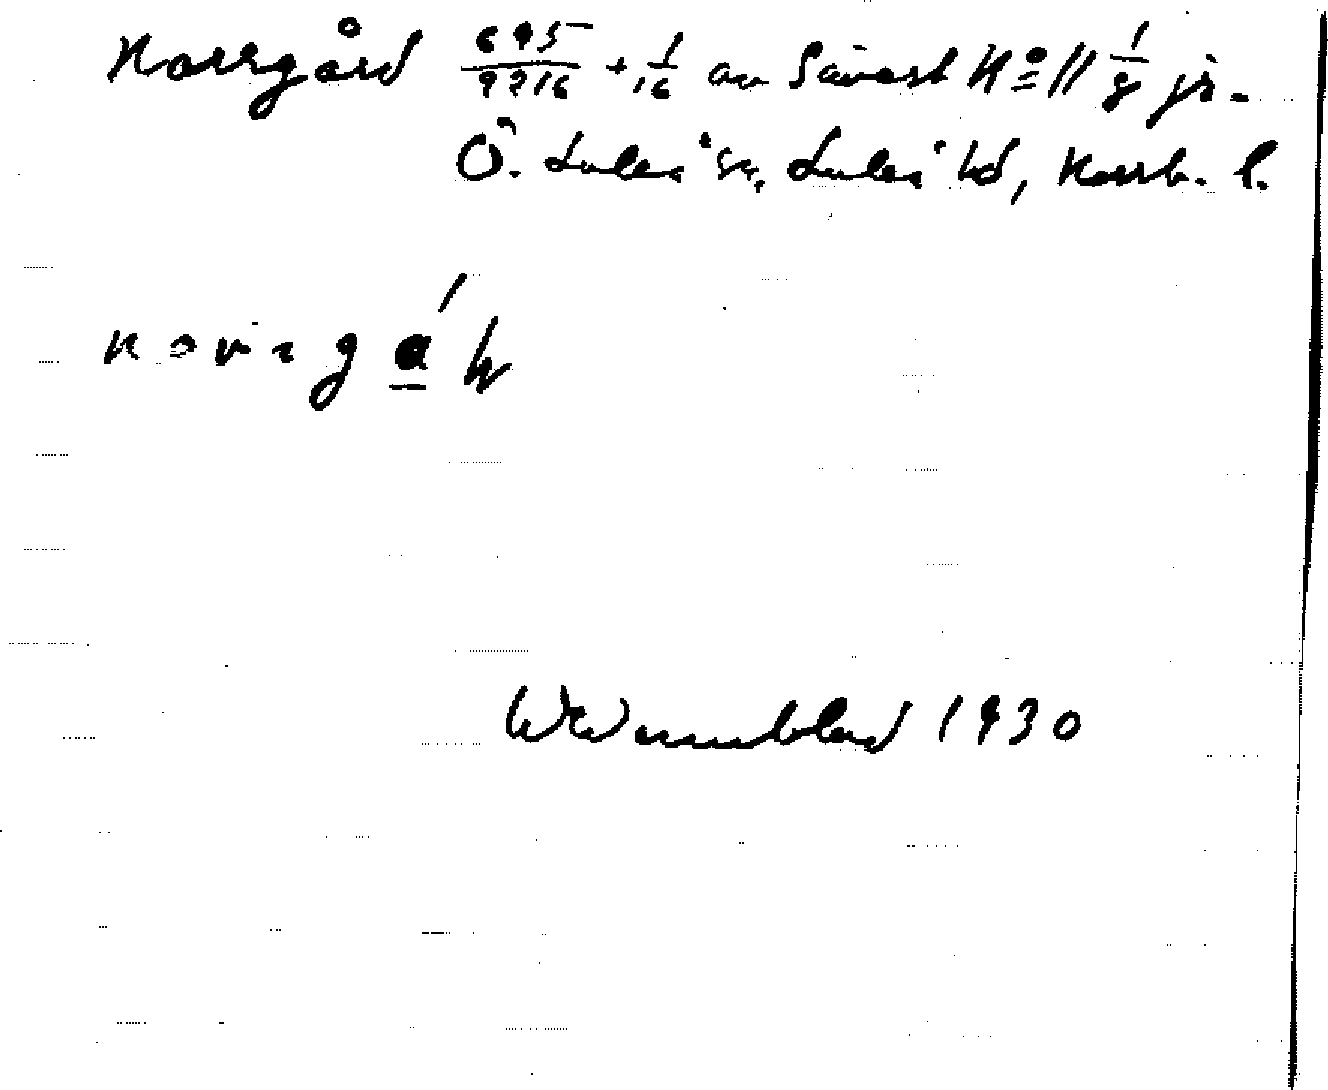 Norrgård 695/9216 + 1/16 av Sävast Nº 11 1/8 js.
Ö. Luleå sn, Luleå td, Norrb. l.
W Wennblad 1930